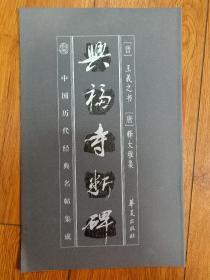 [晋] 王羲之书 [唐] 释大雅集
興福寺斷碑
中国历代经典名帖集成
华夏出版社